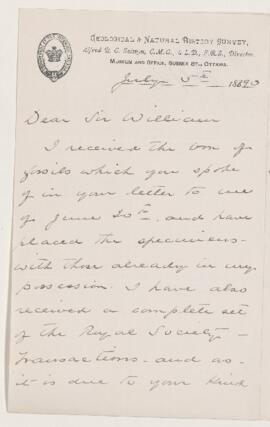 GEOLOGICAL & NATURAL HISTORY SURVEY,
Alfred R. C. Selwyn, C.M.G., LL.D., F.R.S., Director.
MUSEUM AND OFFICE, SUSSEX ST., OTTAWA.
July 5th 1890
Dear Sir William
I received the box of
fossils which you spoke
of in your letter to me
of June 30th and have
placed the specimens
with those already in my
possession. I have also
received a complete set
of the Royal Society -
Transactions - and as -
it is due to your kind